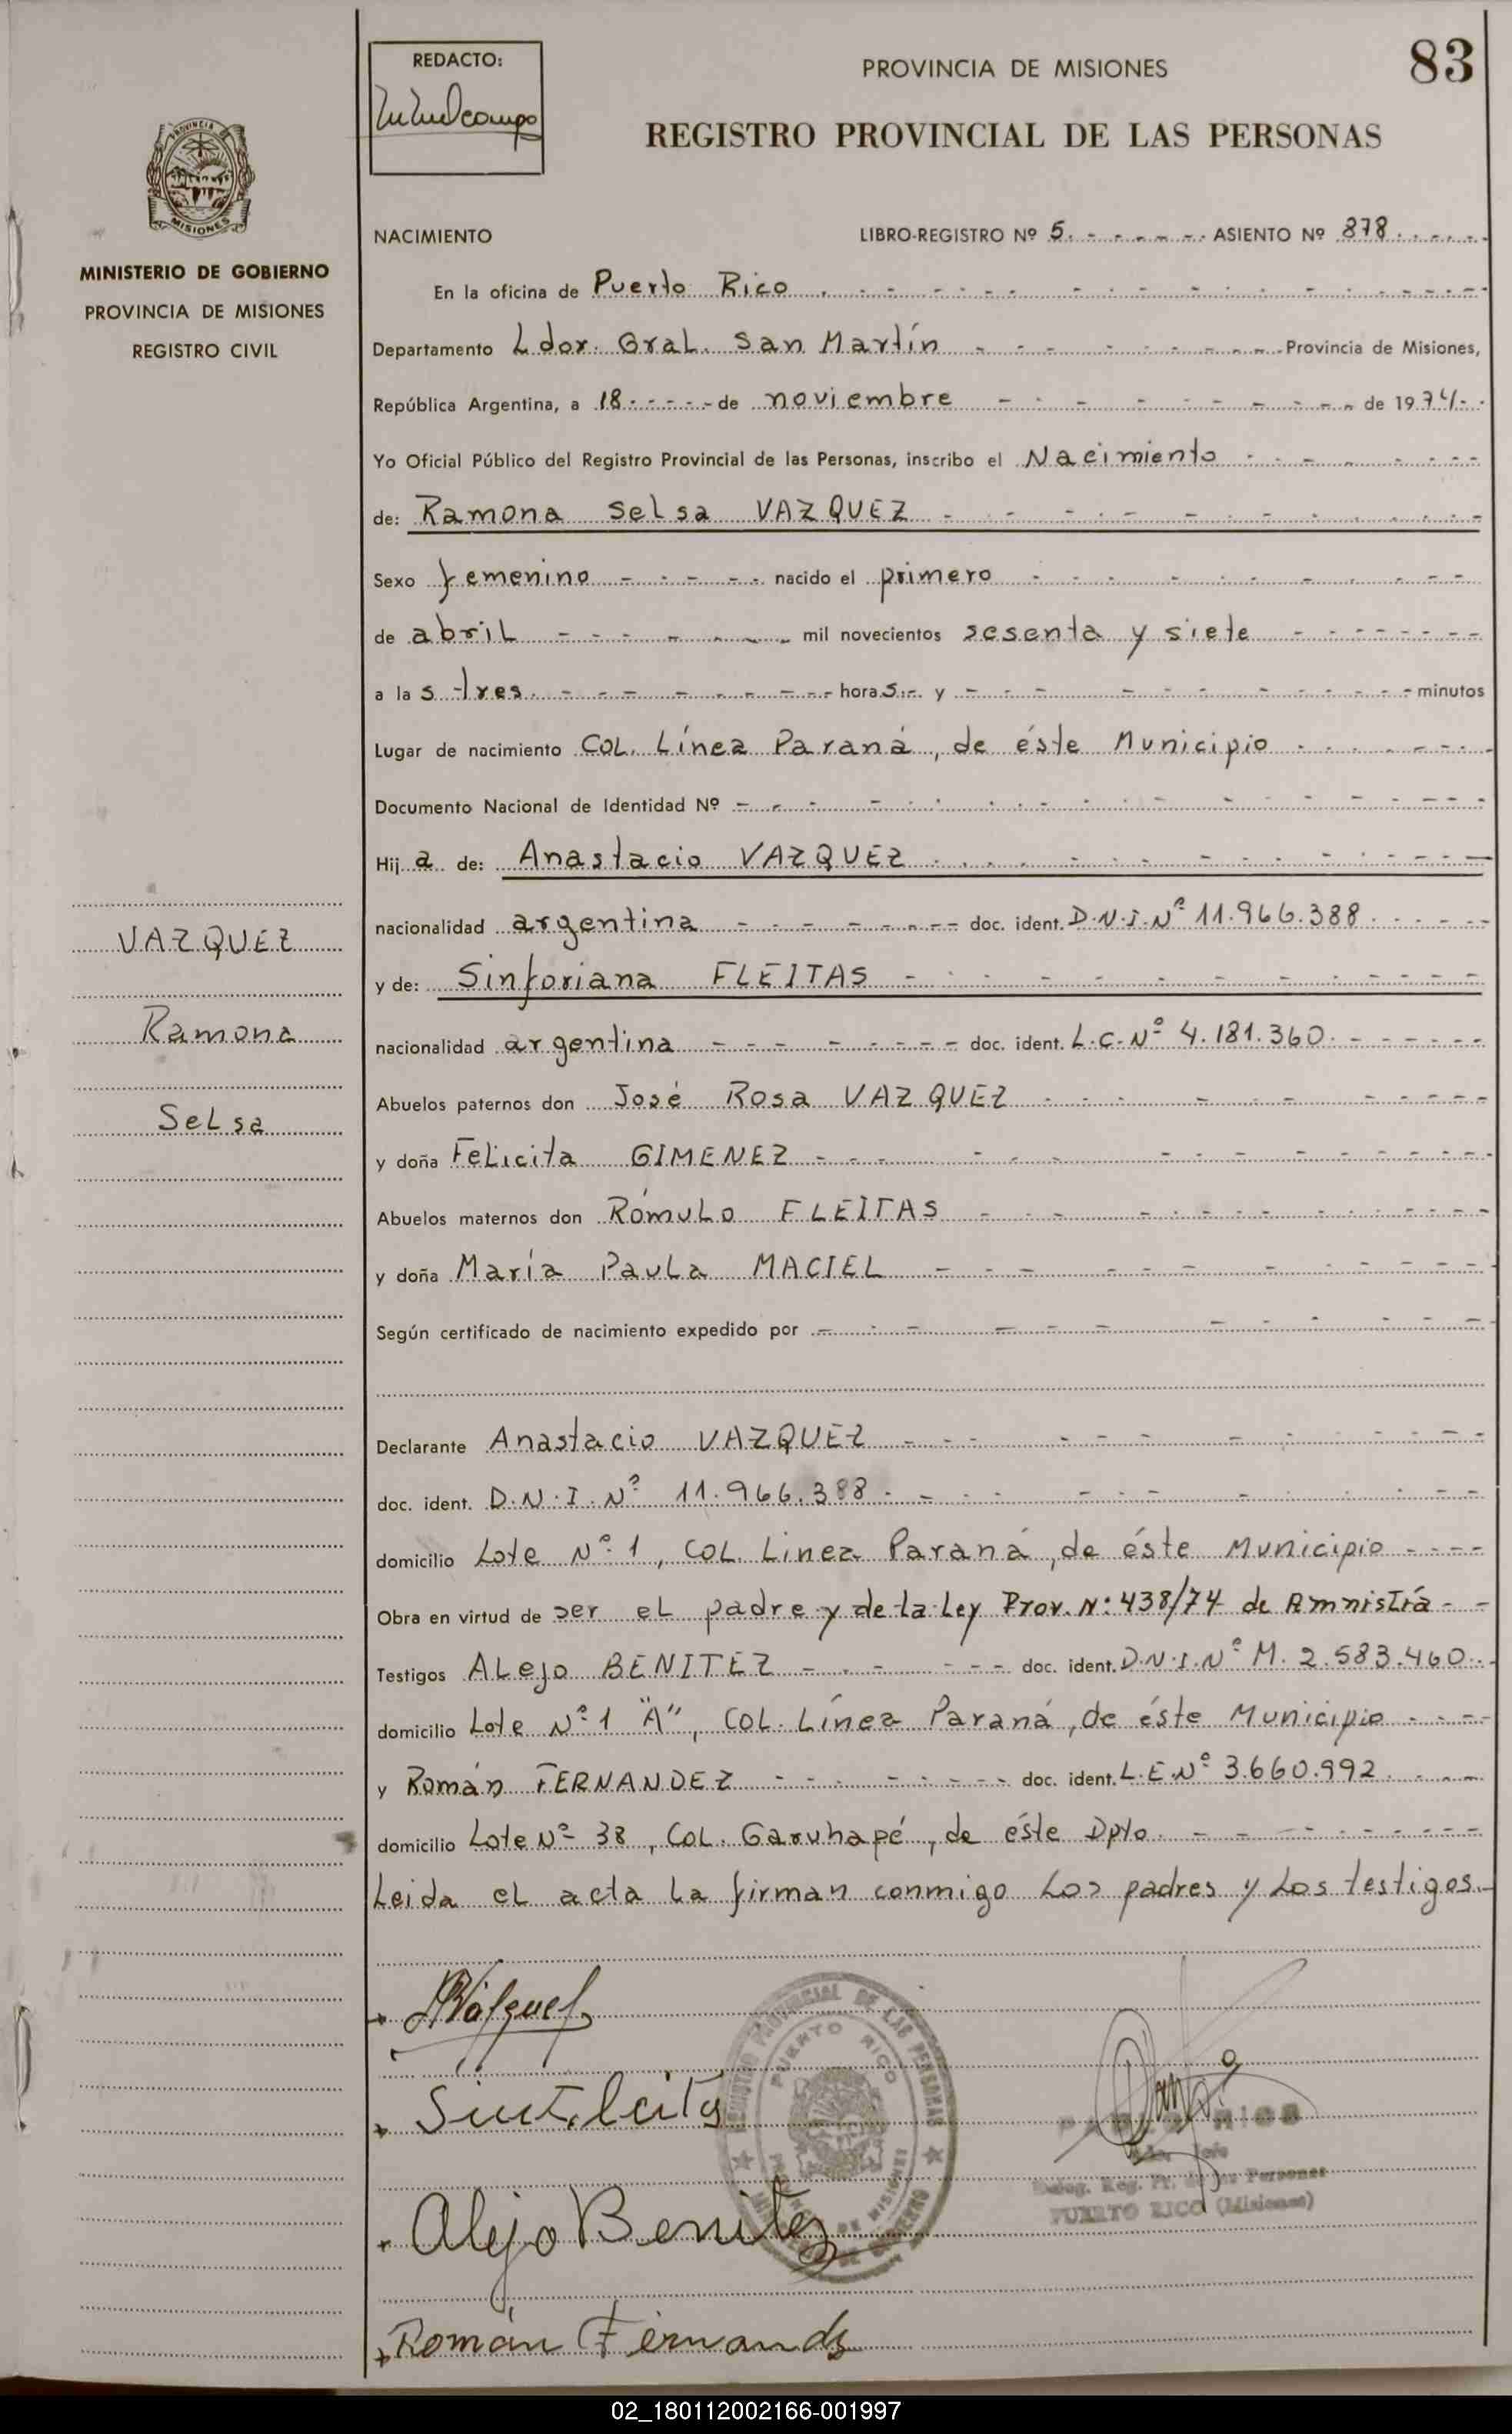 REDACTO:
PROVINCIA DE MISIONES
83
REGISTRO PROVINCIAL DE LAS PERSONAS
PROVINCIA
MISIONES
MINISTERIO DE GOBIERNO
PROVINCIA DE MISIONES
REGISTRO CIVIL
NACIMIENTO LIBRO-REGISTRO Nº 5 ASIENTO Nº 878
En la oficina de Puerto Rico
Departamento Ldor. Gral. San Martín Provincia de Misiones,
República Argentina, a 18 de noviembre de 1974
Yo Oficial Público del Registro Provincial de las Personas, inscribo el Nacimiento
de: Ramona Selsa VAZQUEZ
Sexo femenino nacido el primero
de abril mil novecientos sesenta y siete
a las tres horas y minutos
Lugar de nacimiento Col. Línea Paraná, de éste Municipio
Documento Nacional de Identidad Nº
Hija de: Anastacio VAZQUEZ
nacionalidad argentina doc. ident. D.N.I.Nº 11.966.388
y de: Sinforiana FLEITAS
nacionalidad argentina doc. ident. L.C.Nº 4.181.360
Abuelos paternos don José Rosa VAZQUEZ
y doña Felicita GIMENEZ
Abuelos maternos don Rómulo FLEITAS
y doña María Paula MACIEL
Según certificado de nacimiento expedido por
Declarante Anastacio VAZQUEZ
doc. ident. D.N.I.Nº 11.966.388
domicilio Lote Nº 1, Col. Linea Paraná, de éste Municipio
Obra en virtud de ser el padre y de la Ley Prov. N: 438/74 de Amnistía
Testigos Alejo BENITEZ doc. ident. D.N.I.Nº M. 2.583.460
domicilio Lote Nº 1 "A", Col. Línea Paraná, de éste Municipio
y Román FERNANDEZ doc. ident. L.E.Nº 3.660.992
domicilio Lote Nº 38, Col. Garuhapé, de éste Dpto.
Leida el acta la firman conmigo los padres y los testigos
VAZQUEZ
Ramona
Selsa
REGISTRO PROVINCIAL DE LAS PERSONAS
PUERTO RICO
MINISTERIO DE GOBIERNO
PROVINCIA DE MISIONES
Alejo Benitez
Román Fernandz
Deleg. Reg. Pr. de las Personas
PUERTO RICO (Misiones)
02_180112002166-001997